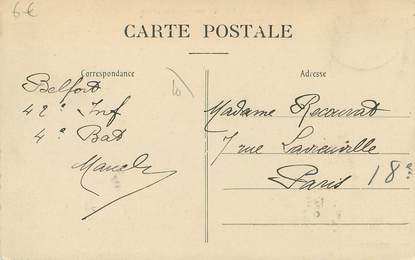 6€
CARTE POSTALE
Correspondance
Adresse
Belfort
42e Inf
4e Bat
Madame Recourat
7 rue Lavieuville
Paris 18e